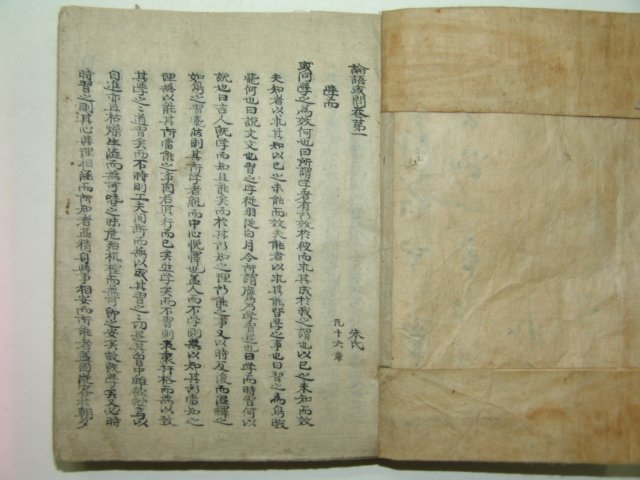 論語或問卷第一
朱氏
學而
凡十六章
或問學之爲效何也曰所謂學者有所效於彼而求其成於我之謂也以己之未知而效
夫知者以求其知以己之未能而效夫能者以求其能皆學之事也曰習之爲鳥數
飛何也曰說文文也習之字從羽從白月令所謂鷹乃學習是也曰學而時習何以
說也曰言人旣學而知且能矣而於其所知之理所能之事又以時反復而溫繹之
如鳥之習飛然則其所學者熟而中心悅懌也盖人而不學則無以知其所當知之
理無以能其所當能之事固若冥行而已矣然學矣而不習則表裏扞格而無以致
其學之之道習矣而不時則工夫間斷而無以成其習之之功是其胷中雖欲勉焉以
自進亦且枯燥生澁而無可嗜之味危殆杌楻而無可卽之安矣故旣學矣又必時
時習之則其心與理相涵而所知者益精身與事相安而所能者益固從容於朝夕